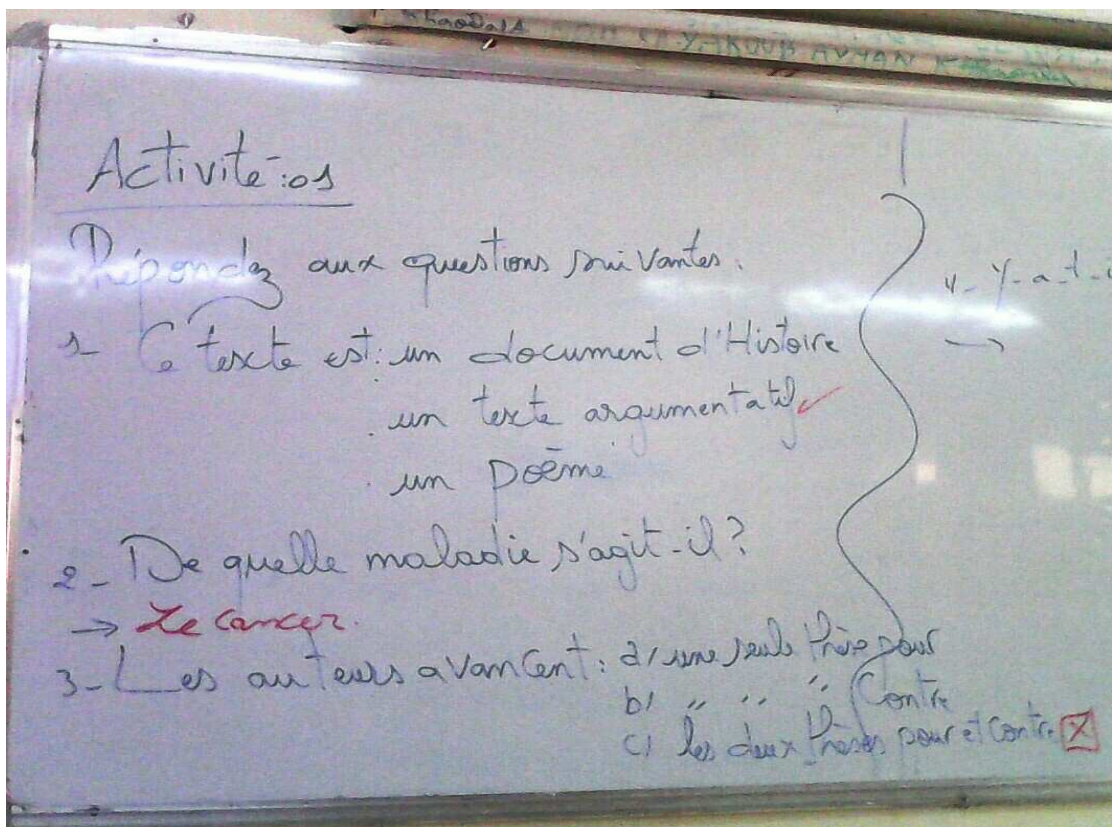 Activité:01
Répondez aux questions suivantes.
1- Ce texte est: un document d'Histoire
un texte argumentatif ✓
un poème
2- De quelle maladie s'agit-il?
→ Le cancer.
3- Les auteurs avancent: a/ une seule thèse pour
b/ " " " Contre
c/ les deux thèses pour et contre ☒
4- Y-a-t-i
→